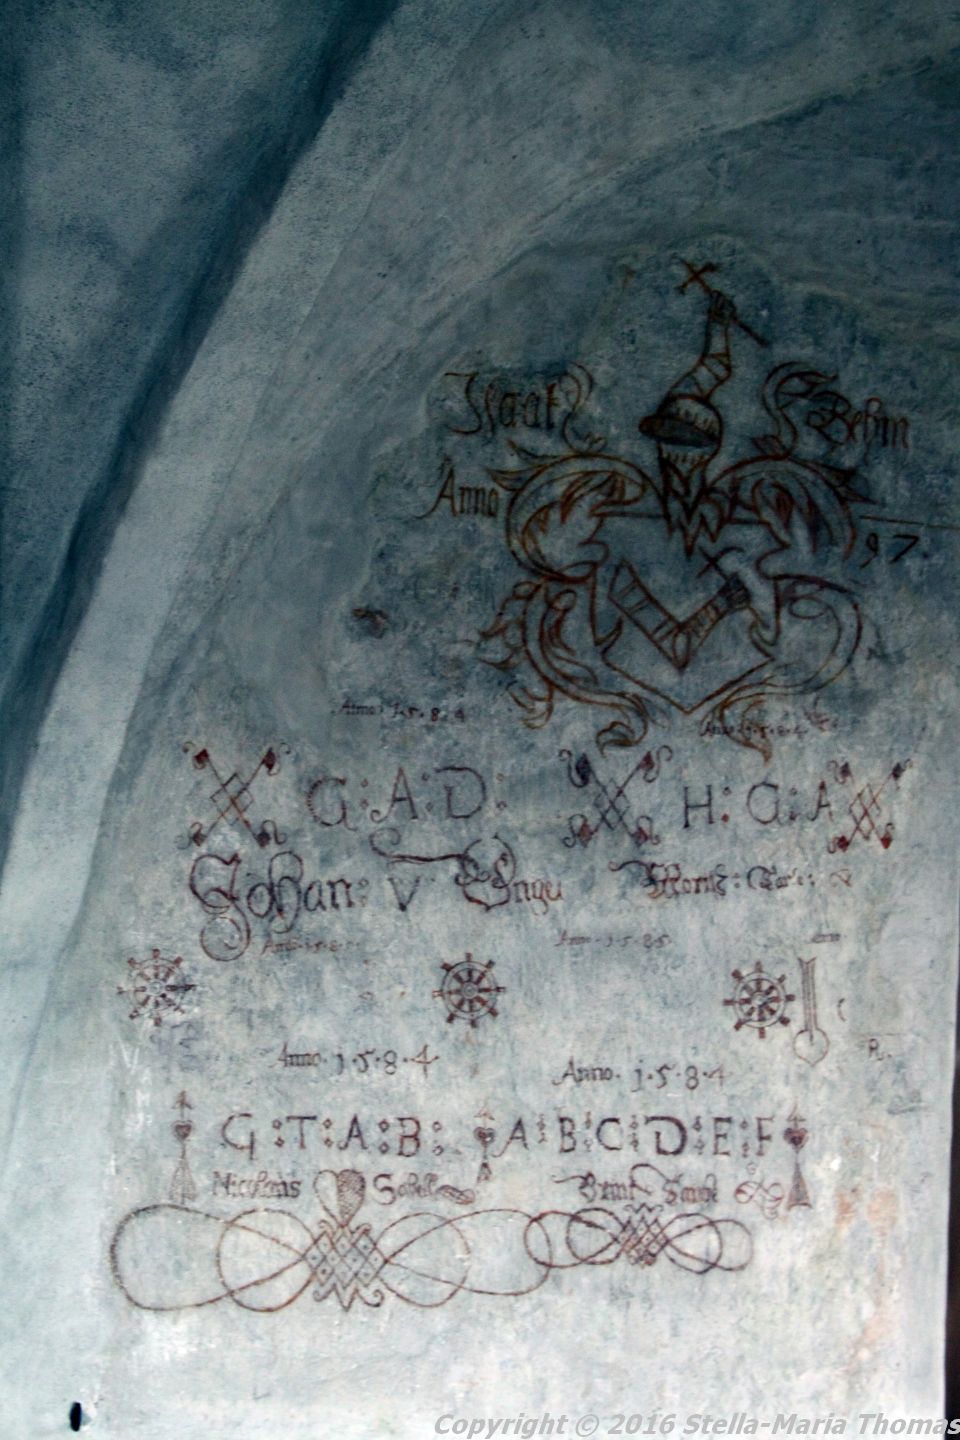 Isaak Behm
Anno 97
Anno 1.5.8.4 Anno 1.5.8.4
G:A:D: H:G:A
Johan: V
Anno 1.5.8.5 Anno 1.5.85
Anno
R.
Anno. 1.5.8.4. Anno. 1.5.8.4
G:T:A:B: A:B:C:D:E:F
Nicolaus
Copyright © 2016 Stella-Maria Thomas